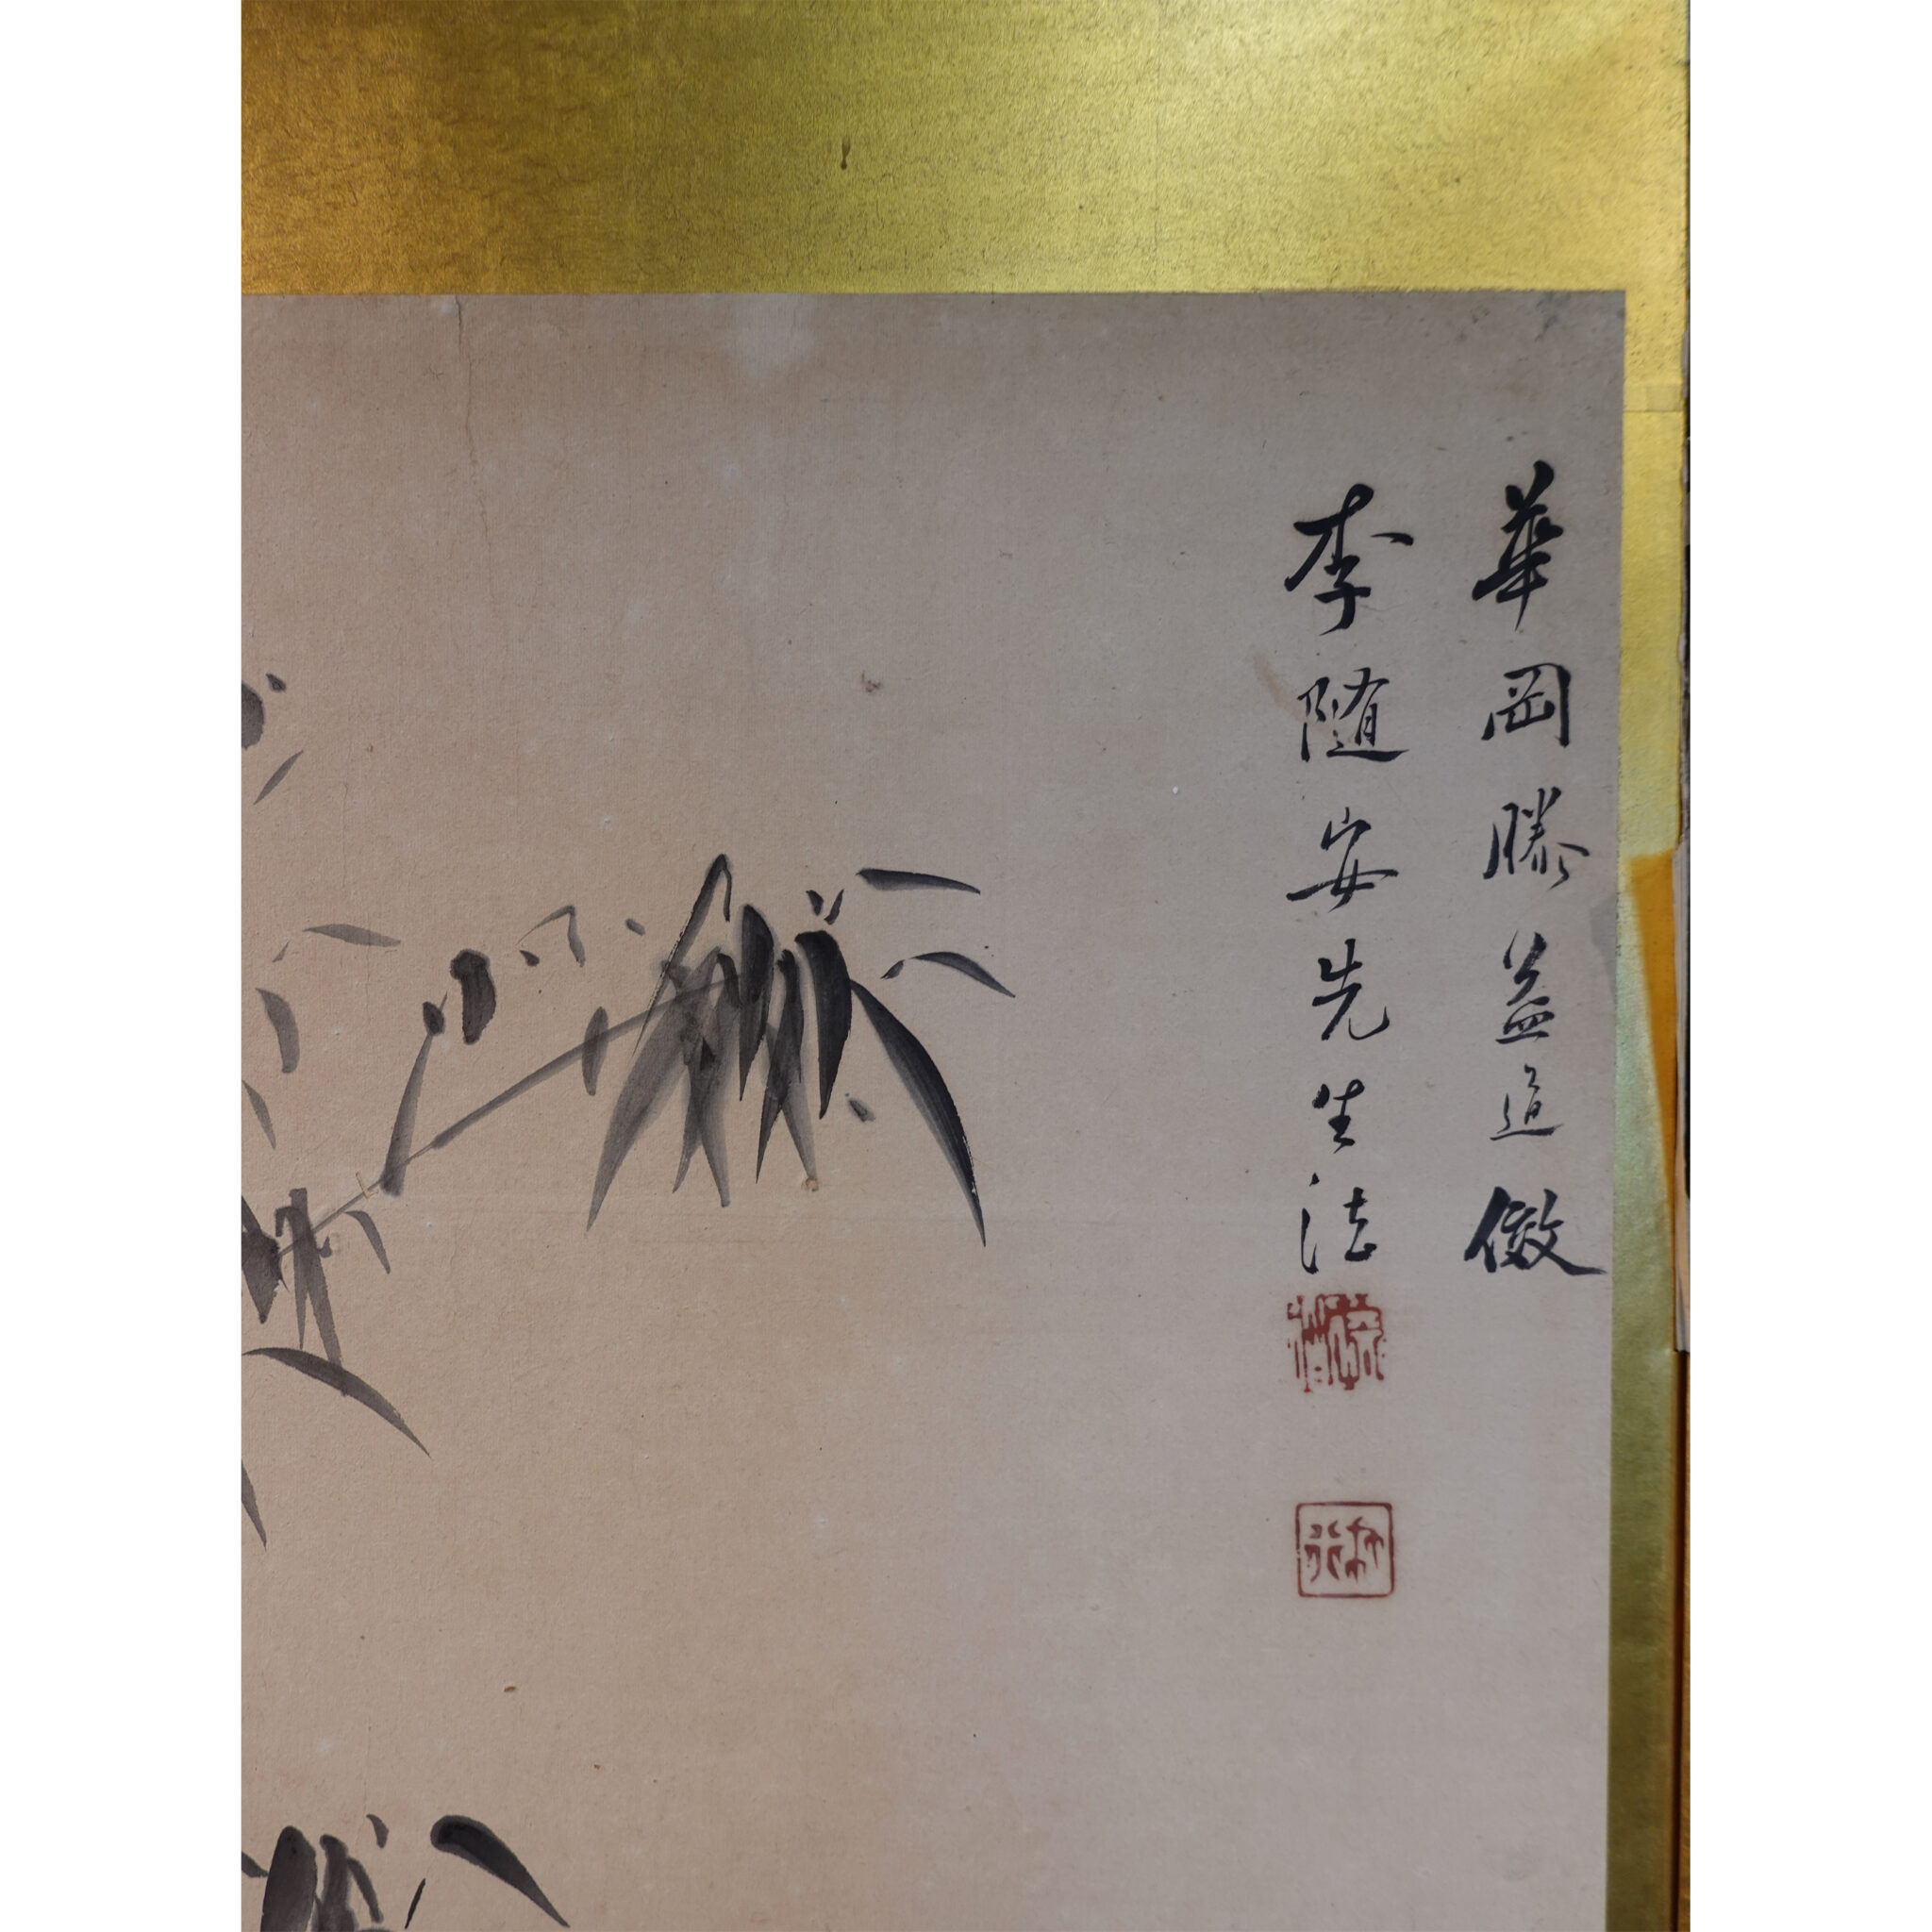 華岡滕益道倣
李随安先生法